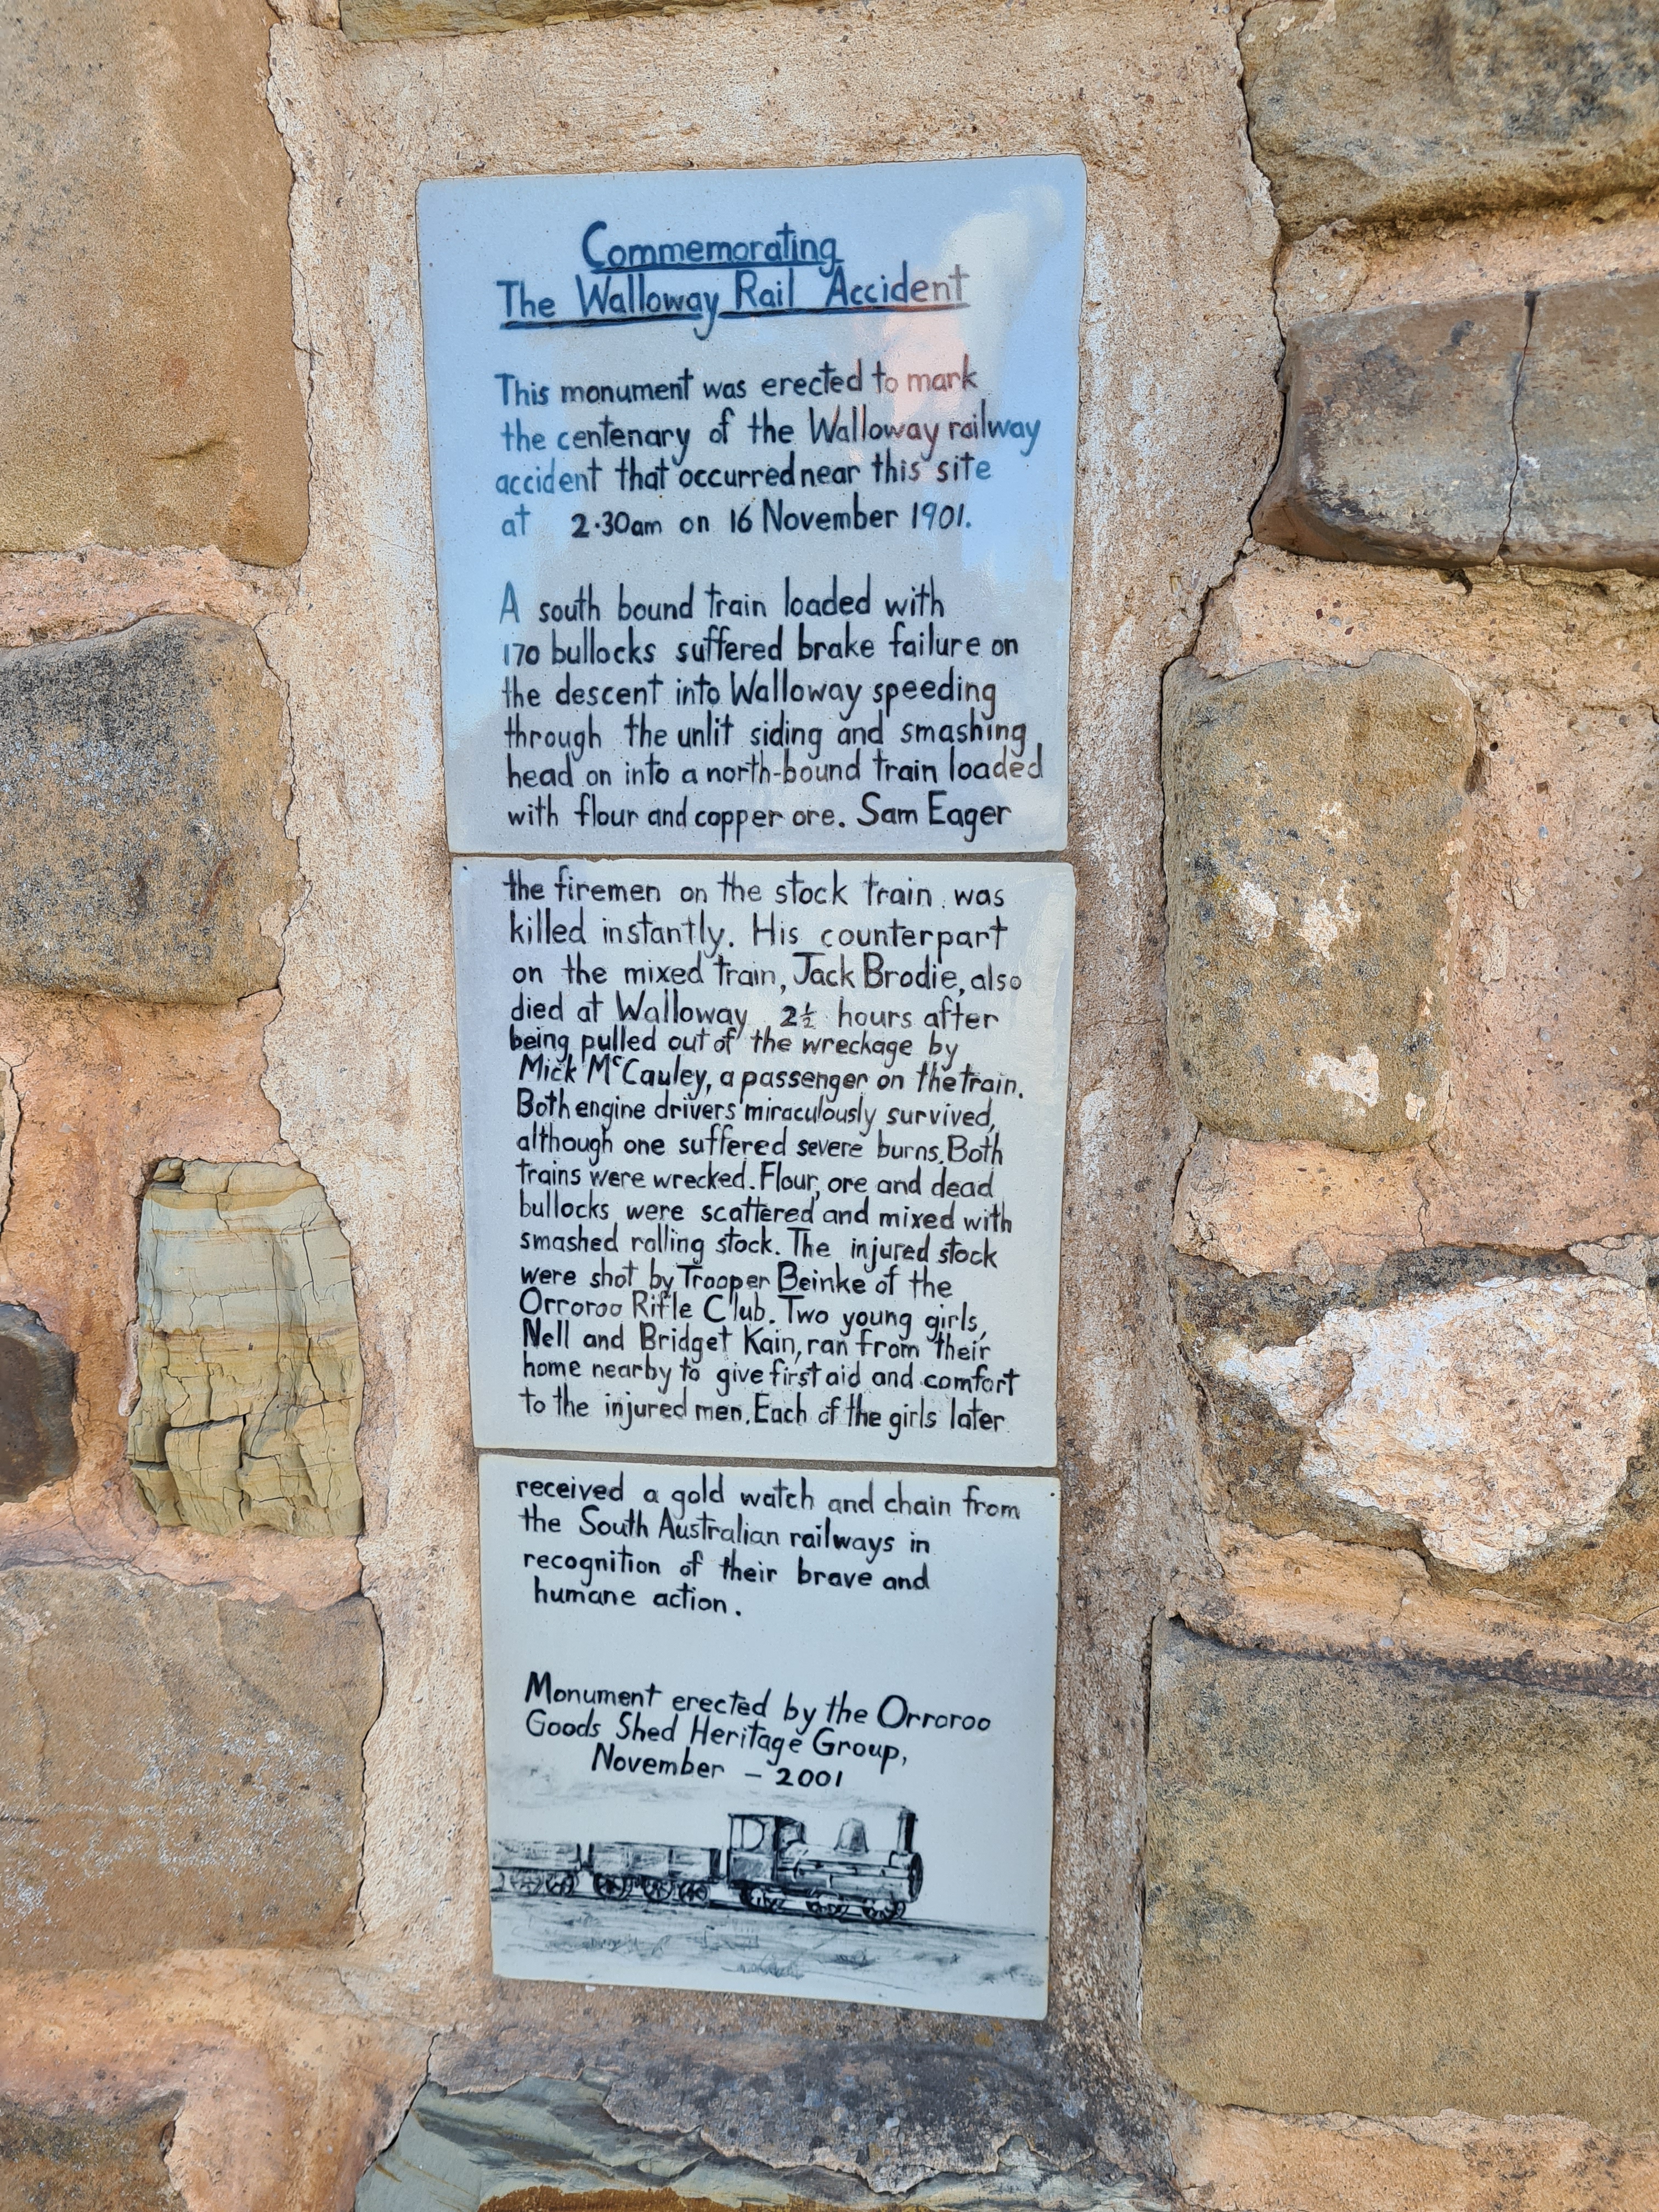 Commemorating
The Walloway Rail Accident
This monument was erected to mark
the centenary of the Walloway railway
accident that occurred near this site
at 2.30am on 16 November 1901.
A south bound train loaded with
170 bullocks suffered brake failure on
the descent into Walloway speeding
through the unlit siding and smashing
head on into a north-bound train loaded
with flour and copper ore. Sam Eager
the firemen on the stock train was
killed instantly. His counterpart
on the mixed train, Jack Brodie, also
died at Walloway 2½ hours after
being pulled out of the wreckage by
Mick McCauley, a passenger on the train.
Both engine drivers miraculously survived,
although one suffered severe burns. Both
trains were wrecked. Flour, ore and dead
bullocks were scattered and mixed with
smashed rolling stock. The injured stock
were shot by Trooper Beinke of the
Orroroo Rifle Club. Two young girls,
Nell and Bridget Kain, ran from their
home nearby to give first aid and comfort
to the injured men. Each of the girls later
received a gold watch and chain from
the South Australian railways in
recognition of their brave and
humane action.
Monument erected by the Orroroo
Goods Shed Heritage Group,
November - 2001